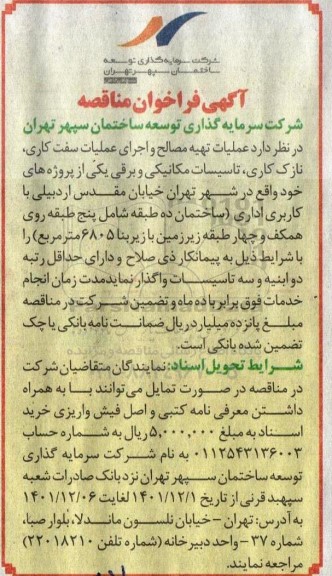 شرکت سرمایه‌گذاری توسعه
ساختمان سپهر تهران
آگهی فراخوان مناقصه
شرکت سرمایه گذاری توسعه ساختمان سپهر تهران
در نظر دارد عملیات تهیه مصالح و اجرای عملیات سفت کاری،
نازک کاری، تاسیسات مکانیکی و برقی یکی از پروژه های
خود واقع در شهر تهران خیابان مقدس اردبیلی با
کاربری اداری (ساختمان ده طبقه شامل پنج طبقه روی
همکف و چهار طبقه زیرزمین با زیربنا ۶۸۰۵ مترمربع) را
با شرایط ذیل به پیمانکار ذی صلاح و دارای حداقل رتبه
دو ابنیه و سه تاسیسات واگذار نماید مدت زمان انجام
خدمات فوق برابر با ده ماه و تضمین شرکت در مناقصه
مبلغ پانزده میلیارد ریال ضمانت نامه بانکی یا چک
تضمین شده بانکی است.
شرایط تحویل اسناد: نمایندگان متقاضیان شرکت
در مناقصه در صورت تمایل می‌توانند با به همراه
داشتن معرفی نامه کتبی و اصل فیش واریزی خرید
اسناد به مبلغ ۵,۰۰۰,۰۰۰ ریال به شماره حساب
۰۱۱۲۵۴۳۱۳۶۰۰۳ به نام شرکت سرمایه گذاری
توسعه ساختمان سپهر تهران نزد بانک صادرات شعبه
سپهبد قرنی از تاریخ ۱۴۰۱/۱۲/۱ لغایت ۱۴۰۱/۱۲/۰۶
به آدرس: تهران - خیابان نلسون ماندلا، بلوار صبا،
شماره ۳۷ - واحد دبیرخانه (شماره تلفن ۲۲۰۱۸۲۱۰)
مراجعه نمایند.